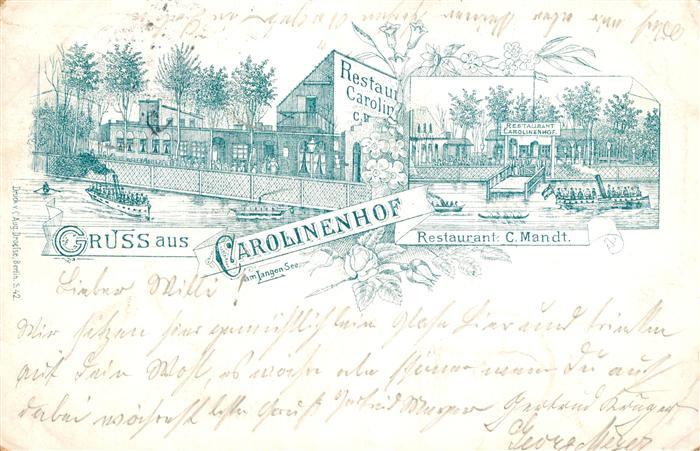 Restau
Carolin
C. M
RESTAURANT
CAROLINENHOF.
GRUSS aus
CAROLINENHOF
am langen See.
Restaurant: C. Mandt.
Druck v. Aug. Drosse, Berlin. S. 42.
Lieber Willi!
Wir sitzen hier gemüthlich beim Glase Bier und trinken
auf Dein Wohl, es wäre aber schöner wenn Du auch
dabei wärest Gruß Meyer Gertrud Krüger
Georg Meyer